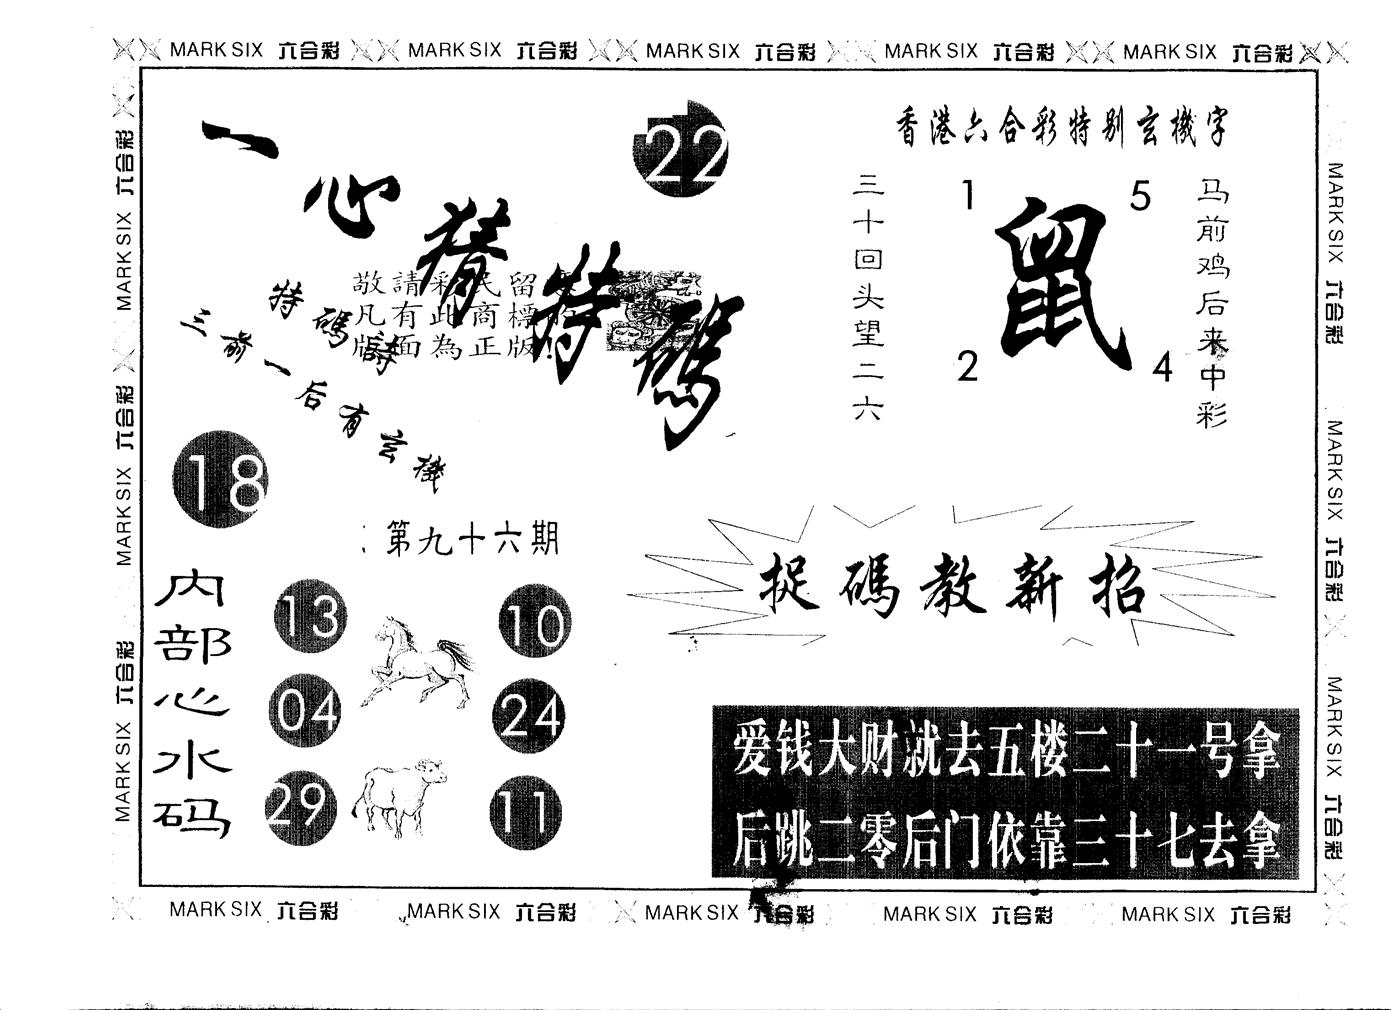 MARK SIX 六合彩 MARK SIX 六合彩 MARK SIX 六合彩 MARK SIX 六合彩 MARK SIX 六合彩
一心猜特碼
22
敬請彩民留
凡有此商標
版面為正版!
特碼詩
三前一后有玄機
18
第九十六期
内部心水码
13
10
04
24
29
11
香港六合彩特别玄機字
三十回头望二六
1
5
鼠
2
4
马前鸡后来中彩
捉碼教新招
爱钱大财就去五楼二十一号拿
后跳二零后门依靠三十七去拿
MARK SIX 六合彩
MARK SIX 六合彩
MARK SIX 六合彩
MARK SIX 六合彩
MARK SIX 六合彩
MARK SIX 六合彩
MARK SIX 六合彩 MARK SIX 六合彩 MARK SIX 六合彩 MARK SIX 六合彩 MARK SIX 六合彩